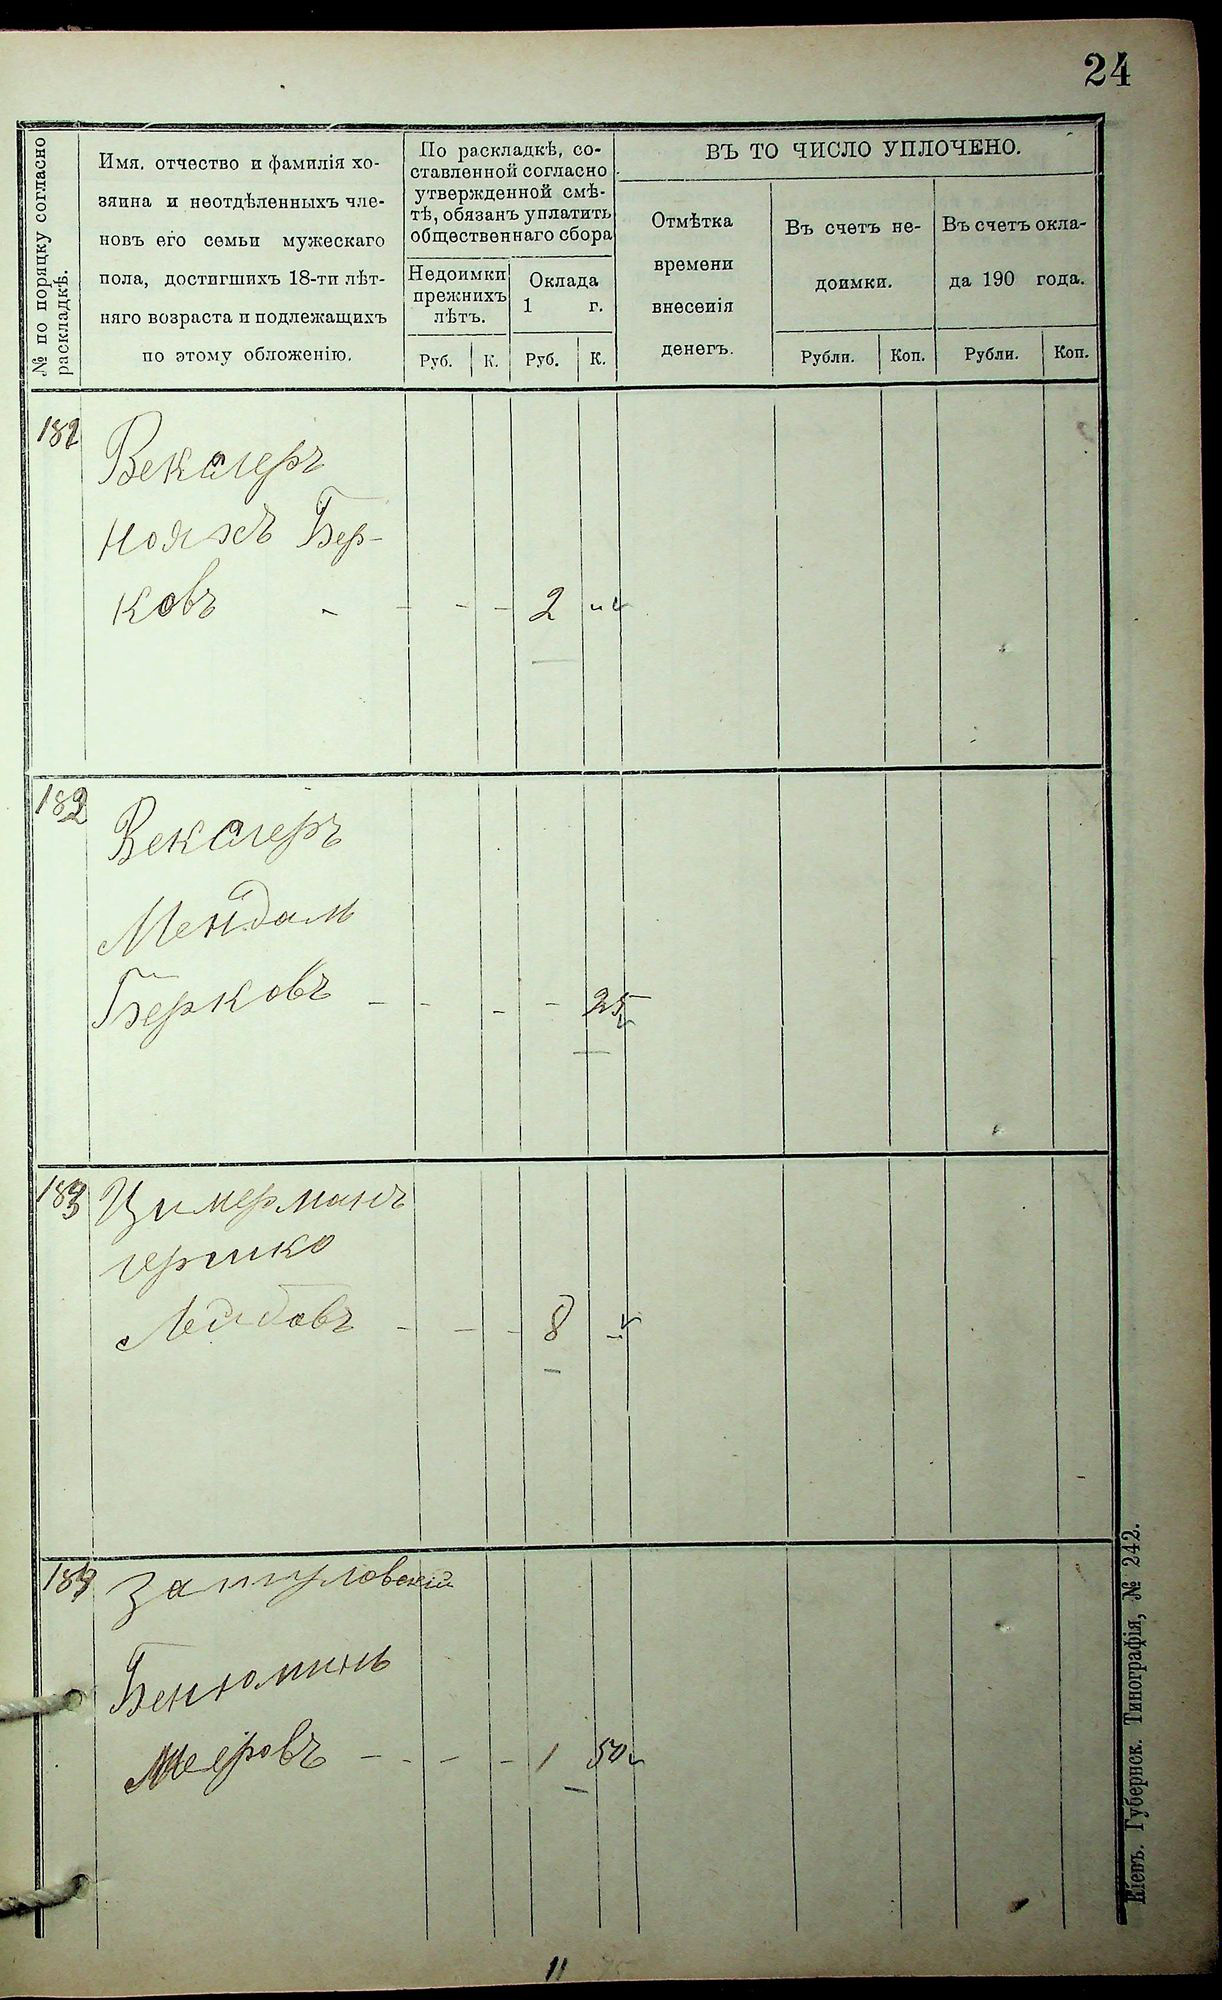 24
№ по поряцку согласно
раскладкѣ.
Имя, отчество и фамилія хо-
зяина и неотдѣленныхъ чле-
новъ его семьи мужескаго
пола, достигшихъ 18-ти лѣт-
няго возраста и подлежащихъ
по этому обложенію.
По раскладкѣ, со-
ставленной согласно
утвержденной смѣ-
тѣ, обязанъ уплатить
общественнаго сбора
Недоимки
прежнихъ
лѣтъ.
Оклада
1 г.
Руб. К. Руб. К.
ВЪ ТО ЧИСЛО УПЛОЧЕНО.
Отмѣтка
времени
внесенія
денегъ.
Въ счетъ не-
доимки.
Рубли. Коп.
Въ счетъ окла-
да 190 года.
Рубли. Коп.
181
Векслеръ
Нояхъ Бер-
ковъ - - - - 2 "
182
Векслеръ
Мендаль
Берковъ - - - - 25
183
Цимерманъ
Гершко
Лейбовъ - - - 8 "
184
Заšуловскій
Бенюминъ
Мееровъ - - - - 1 50
11 75
Кіевъ. Губернск. Типографія, № 242.